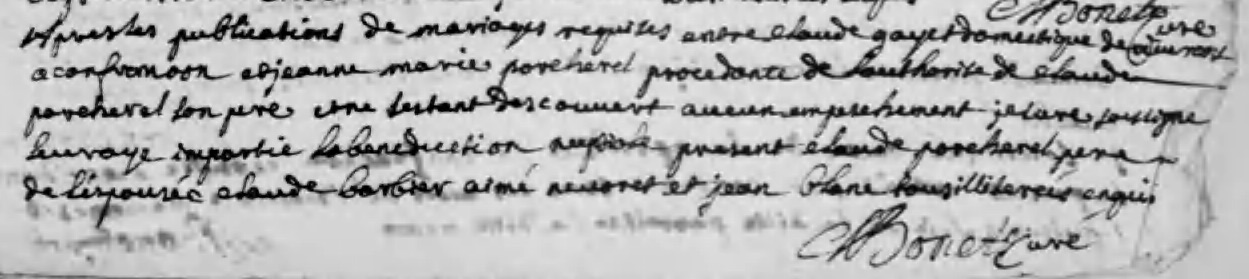 Bonet Cure
Apres les publications de mariages requises entre claude gayet domestique de
a confranson et jeanne marie porcherel procedante de lauthorite de claude
porcherel son pere et ne sestant descouvert aucun empeschement je cure soussigne
leur aye impartie la benediction nuptiale present claude porcherel pere
de lespousée claude barbier aimé nevoret et jean blanc tous illiteres enquis
Bonet Cure